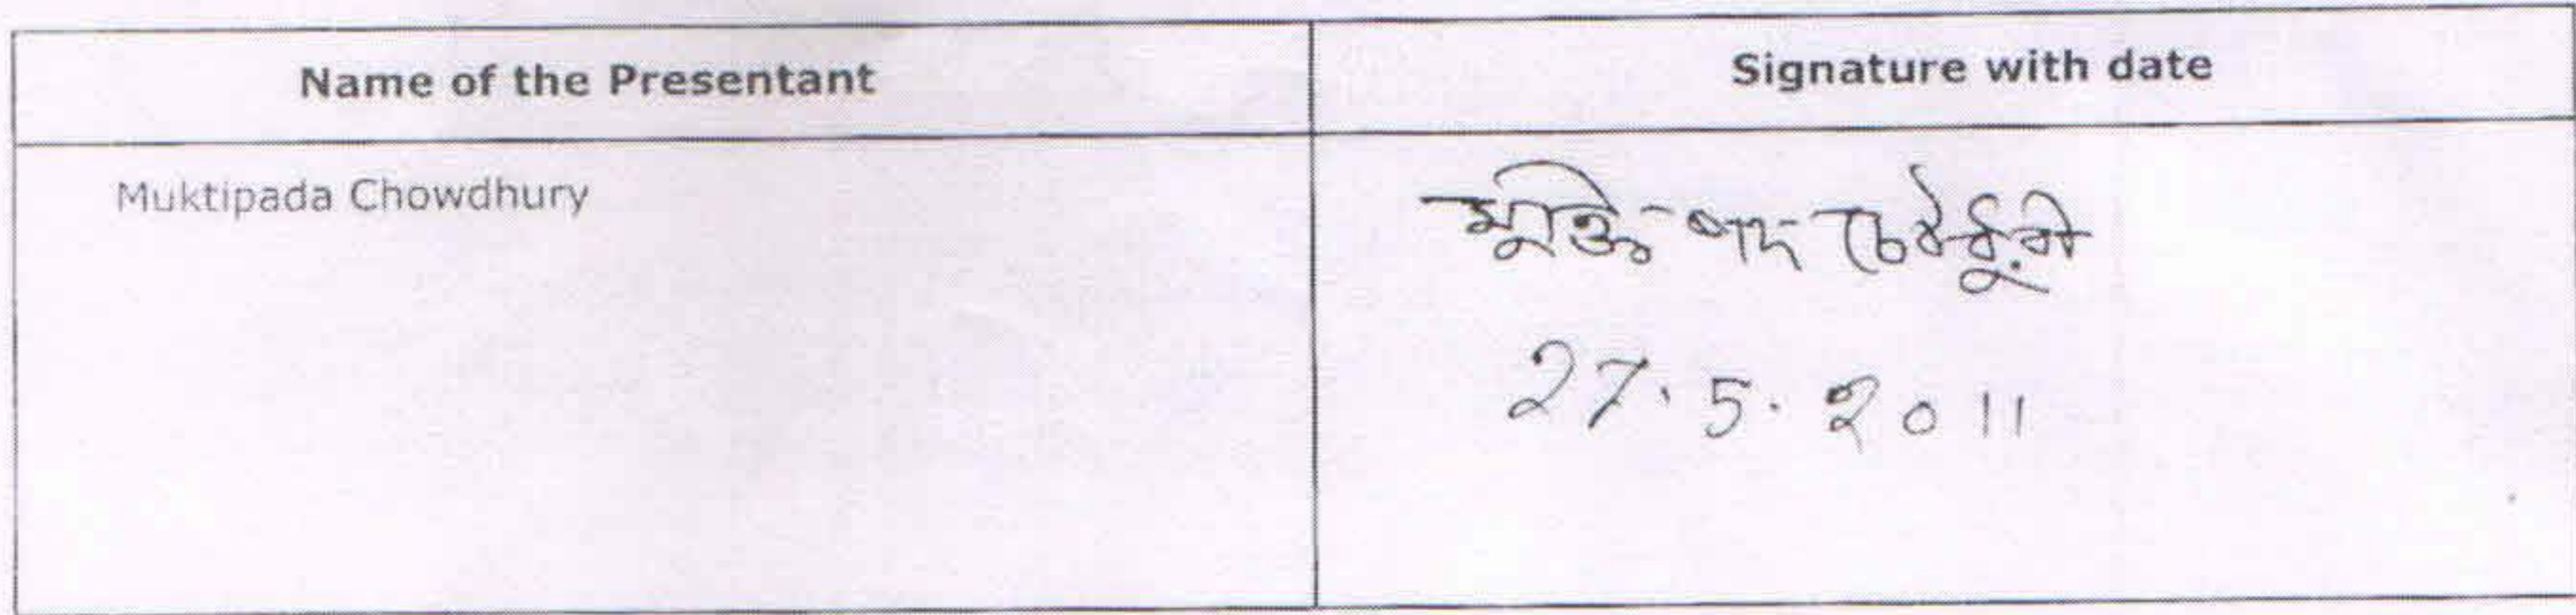 Name of the Presentant
Signature with date
Muktipada Chowdhury
মুক্তি পদ চৌধুরী
27.5.2011